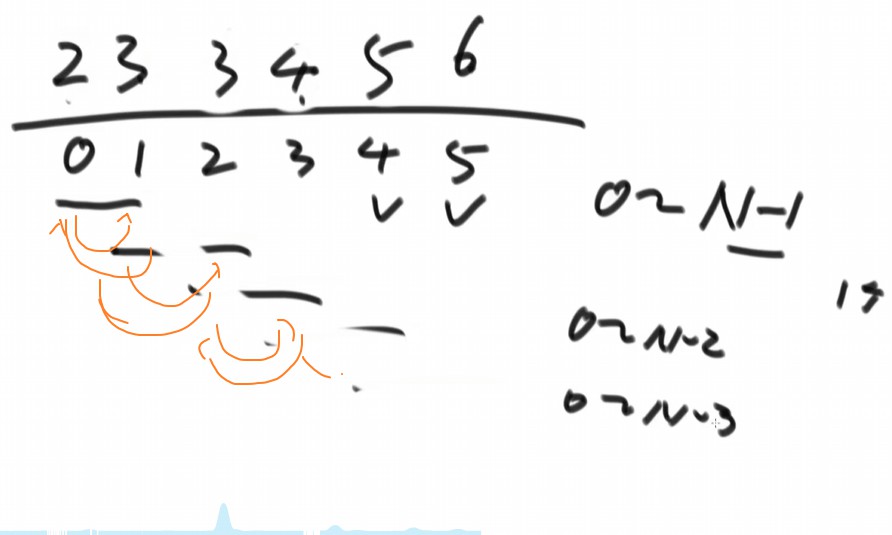 2 3 3 4 5 6
0 1 2 3 4 5
0~N-1
0~N-2
0~N-3